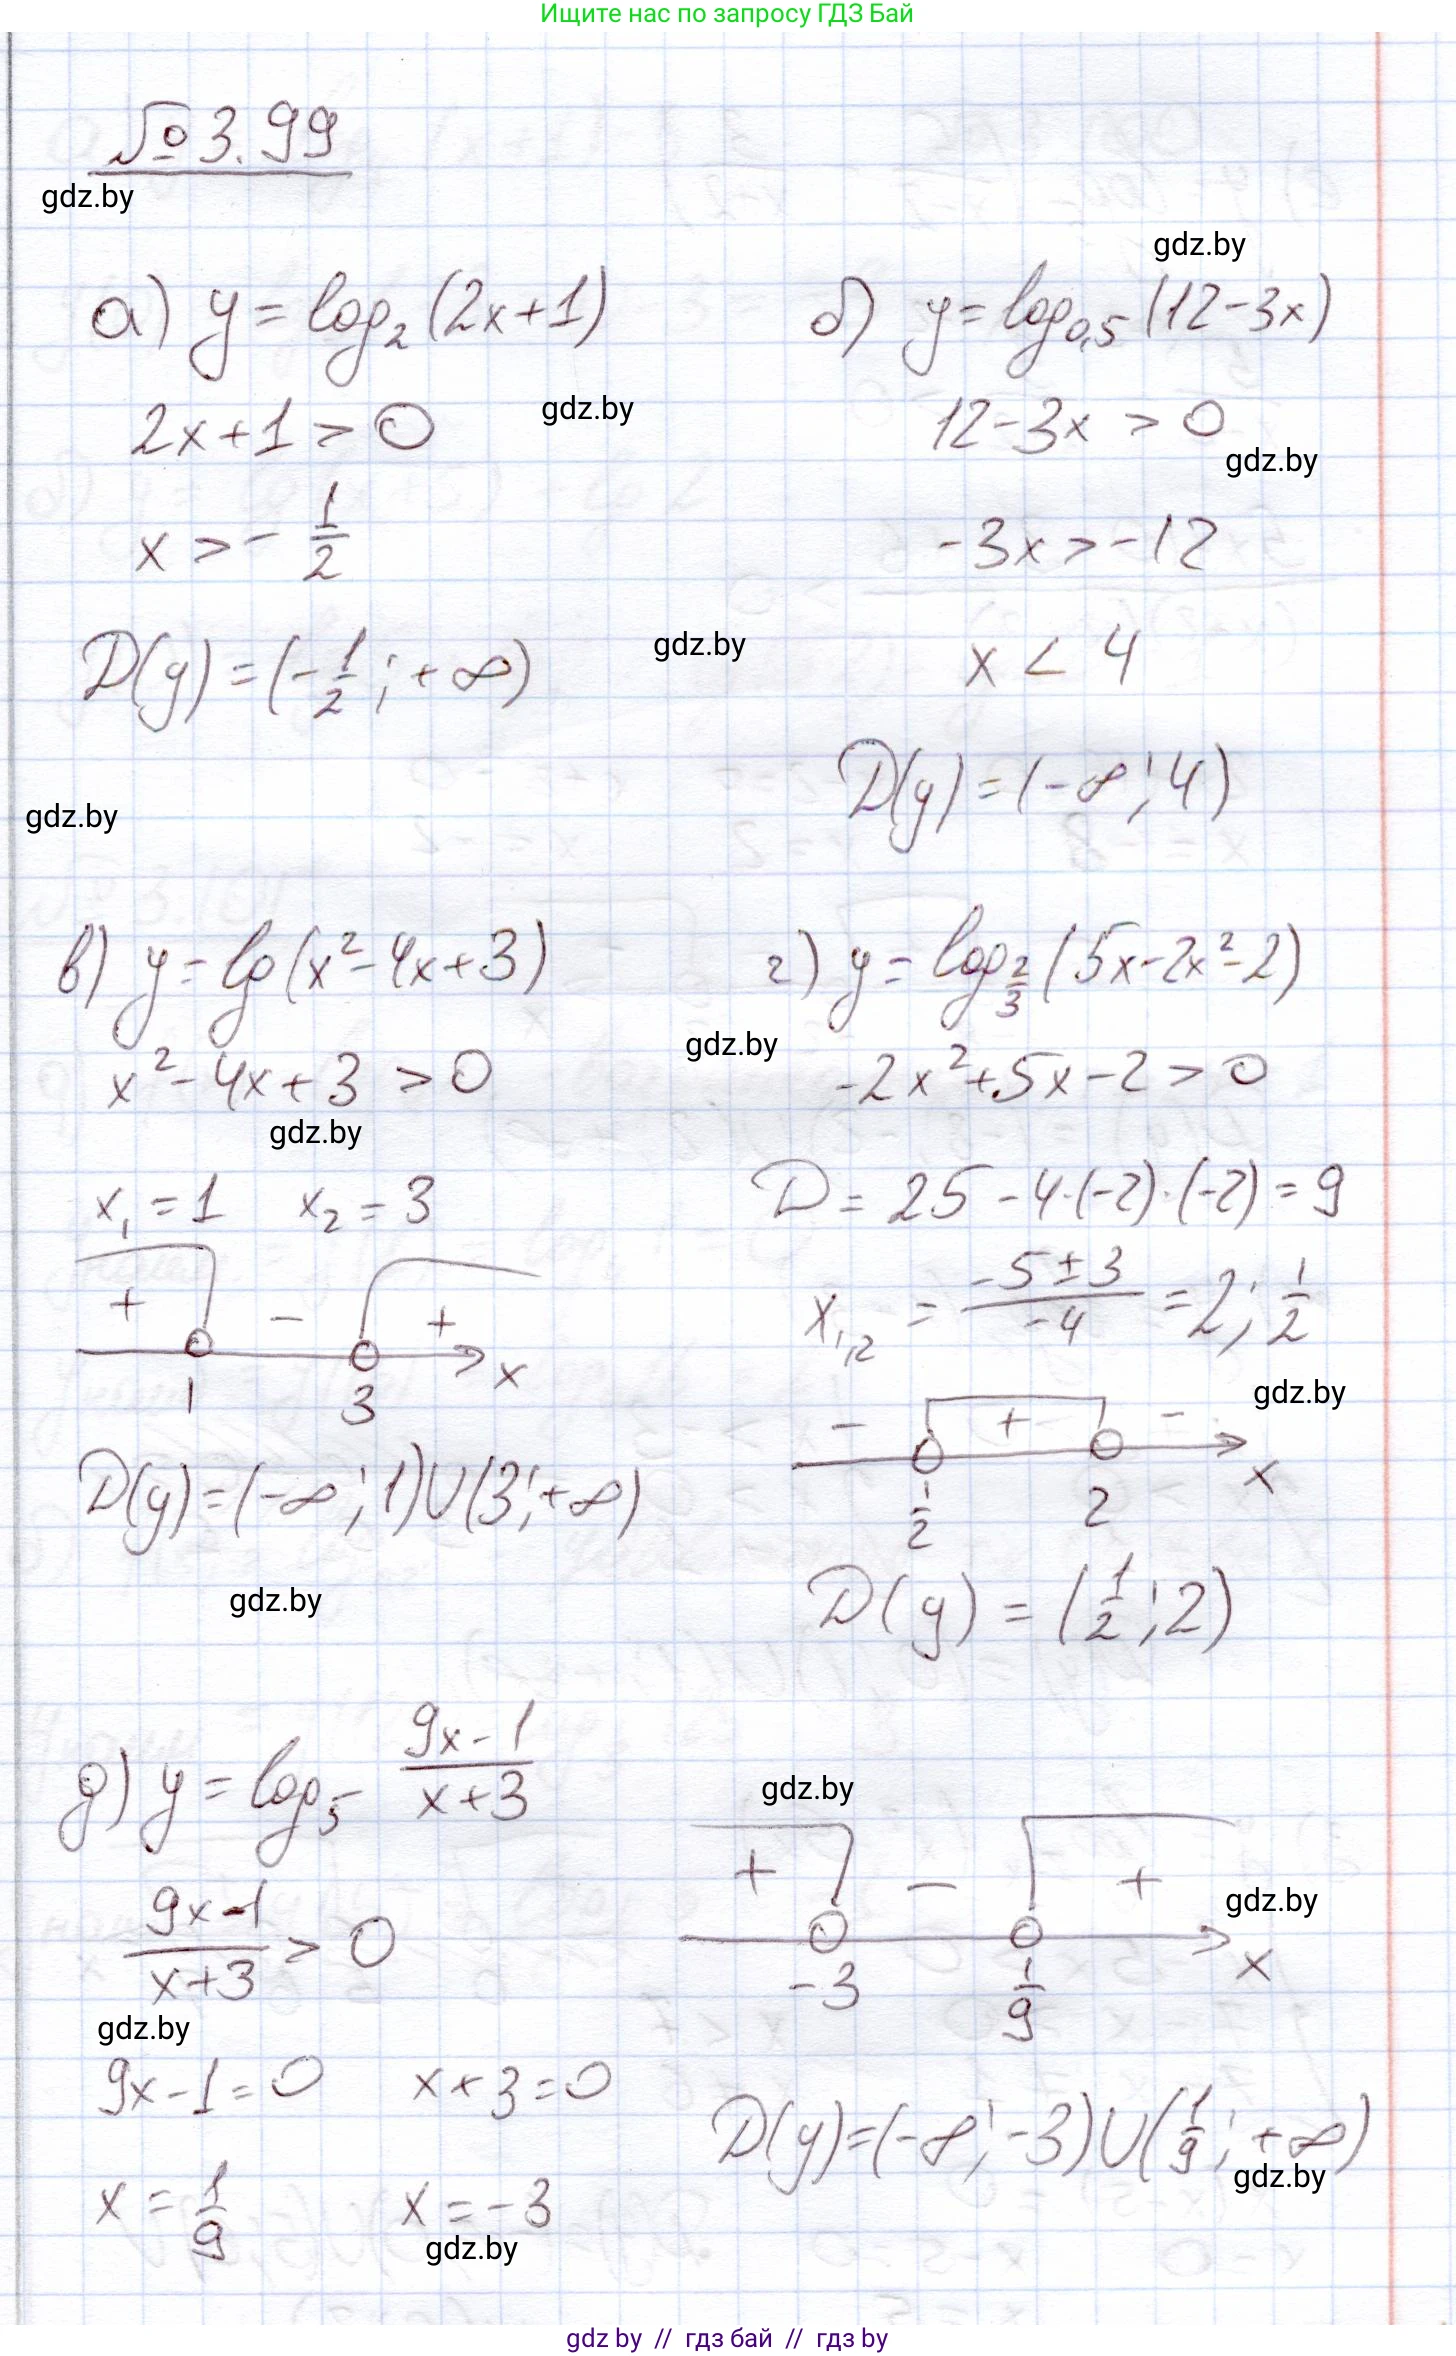 Ищите нас по запросу ГДЗ Бай
№ 3.99
gdz.by
gdz.by
а) y = log₂ (2x+1)
2x+1 > 0
gdz.by
x > - 1/2
D(y) = (-1/2; +∞)
gdz.by
gdz.by
б) y = log₀,₅ (12-3x)
12-3x > 0
gdz.by
-3x > -12
x < 4
D(y) = (-∞; 4)
в) y = lg (x²-4x+3)
x²-4x+3 > 0
gdz.by
x₁ = 1 x₂ = 3
+ - +
1 3 x
D(y) = (-∞; 1)∪(3; +∞)
gdz.by
г) y = log_2/3 (5x-2x²-2)
gdz.by
-2x²+5x-2 > 0
D = 25-4·(-2)·(-2) = 9
x₁,₂ = (-5±3)/(-4) = 2; 1/2
gdz.by
- + -
1/2 2 x
D(y) = (1/2; 2)
д) y = log₅ (9x-1)/(x+3)
(9x-1)/(x+3) > 0
gdz.by
9x-1=0 x+3=0
x = 1/9 x = -3
gdz.by
gdz.by
+ - +
gdz.by
-3 1/9 x
D(y)=(-∞; -3)∪(1/9; +∞)
gdz.by
gdz by // гдз бай // гдз by